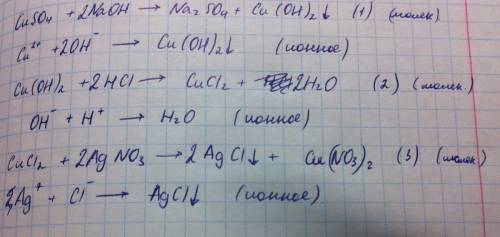 CuSO₄ + 2NaOH → Na₂SO₄ + Cu(OH)₂↓ (1) (молек)
Cu²⁺ + 2OH⁻ → Cu(OH)₂↓ (ионное)
Cu(OH)₂ + 2HCl → CuCl₂ + 2H₂O (2) (молек.)
OH⁻ + H⁺ → H₂O (ионное)
CuCl₂ + 2AgNO₃ → 2AgCl↓ + Cu(NO₃)₂ (3) (молек)
2Ag⁺ + Cl⁻ → AgCl↓ (ионное)